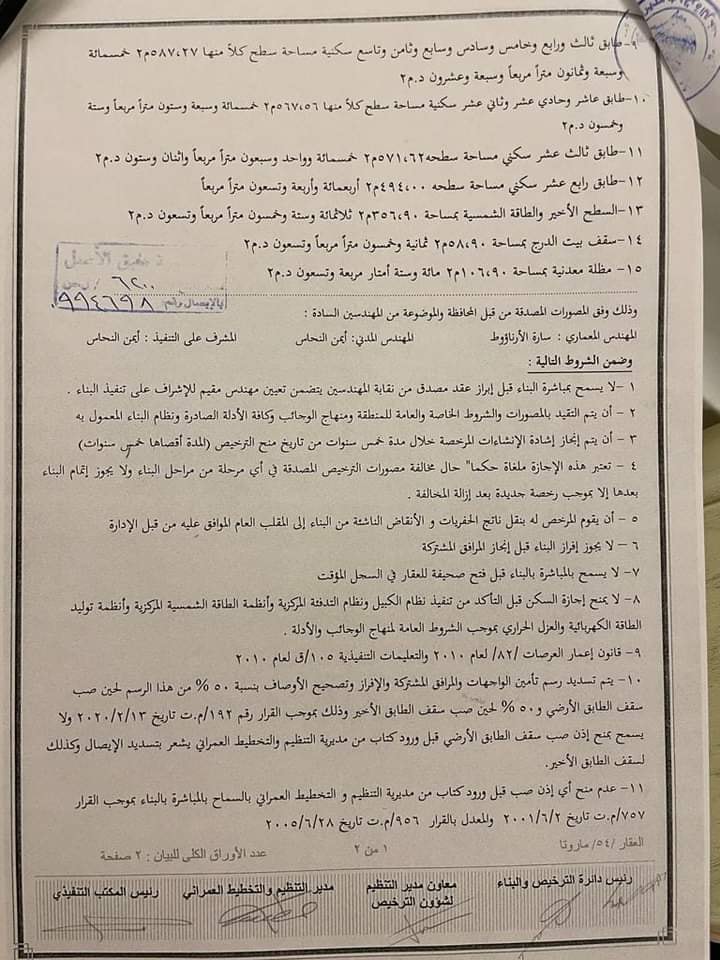 ٩-طابق ثالث ورابع وخامس وسادس وسابع وثامن وتاسع سكنية مساحة سطح كلاً منها ٥٨٧،٢٧م٢ خمسمائة
وسبعة وثمانون متراً مربعاً وسبعة وعشرون د.م٢
١٠-طابق عاشر وحادي عشر وثاني عشر سكنية مساحة سطح كلاً منها ٥٦٧،٥٦م٢ خمسمائة وسبعة وستون متراً مربعاً وستة
وخمسون د.م٢
١١-طابق ثالث عشر سكني مساحة سطحه ٥٧١،٦٢م٢ خمسمائة وواحد وسبعون متراً مربعاً واثنان وستون د.م٢
١٢-طابق رابع عشر سكني مساحة سطحه ٤٩٤،٠٠م٢ أربعمائة وأربعة وتسعون متراً مربعاً
١٣-السطح الأخير والطاقة الشمسية بمساحة ٣٥٦،٩٠م٢ ثلاثمائة وستة وخمسون متراً مربعاً وتسعون د.م٢
١٤-سقف بيت الدرج بمساحة ٥٨،٩٠م٢ ثمانية وخمسون متراً مربعاً وتسعون د.م٢
١٥- مظلة معدنية بمساحة ١٠٦،٩٠م٢ مائة وستة أمتار مربعة وتسعون د.م٢
٦٢٠٠
بالإيصال رقم: ٩٩٤٦٩٨
وذلك وفق المصورات المصدقة من قبل المحافظة والموضوعة من المهندسين السادة :
المهندس المعماري : سارة الأرناؤوط المهندس المدني: أيمن النحاس المشرف على التنفيذ : أيمن النحاس
وضمن الشروط التالية :
١ -لا يسمح بمباشرة البناء قبل إبراز عقد مصدق من نقابة المهندسين يتضمن تعيين مهندس مقيم للإشراف على تنفيذ البناء .
٢ - أن يتم التقيد بالمصورات والشروط الخاصة والعامة للمنطقة ومنهاج الوجائب وكافة الأدلة الصادرة ونظام البناء المعمول به
٣ - أن يتم إنجاز إشادة الإنشاءات المرخصة خلال مدة خمس سنوات من تاريخ منح الترخيص (المدة أقصاها خمس سنوات)
٤ - تعتبر هذه الإجازة ملغاة حكما" حال مخالفة مصورات الترخيص المصدقة في أي مرحلة من مراحل البناء ولا يجوز إتمام البناء
بعدها إلا بموجب رخصة جديدة بعد إزالة المخالفة .
٥ - أن يقوم المرخص له بنقل ناتج الحفريات و الأنقاض الناشئة من البناء إلى المقلب العام الموافق عليه من قبل الإدارة
٦ - لا يجوز إفراز البناء قبل إنجاز المرافق المشتركة
٧- لا يسمح بالمباشرة بالبناء قبل فتح صحيفة للعقار في السجل المؤقت
٨- لا يمنح إجازة السكن قبل التأكد من تنفيذ نظام الكبيل ونظام التدفئة المركزية وأنظمة الطاقة الشمسية المركزية وأنظمة توليد
الطاقة الكهربائية والعزل الحراري بموجب الشروط العامة لمنهاج الوجائب والأدلة .
٩- قانون إعمار العرصات /٨٢/ لعام ٢٠١٠ والتعليمات التنفيذية ١٠٥/ق لعام ٢٠١٠
١٠- يتم تسديد رسم تأمين الواجهات والمرافق المشتركة والإفراز وتصحيح الأوصاف بنسبة ٥٠ % من هذا الرسم لحين صب
سقف الطابق الأرضي و ٥٠ % لحين صب سقف الطابق الأخير وذلك بموجب القرار رقم ١٩٢/م.ت تاريخ ٢٠٢٠/٢/١٣ ولا
يسمح بمنح إذن صب سقف الطابق الأرضي قبل ورود كتاب من مديرية التنظيم والتخطيط العمراني يشعر بتسديد الإيصال وكذلك
لسقف الطابق الأخير.
١١- عدم منح أي إذن صب قبل ورود كتاب من مديرية التنظيم و التخطيط العمراني بالسماح بالمباشرة بالبناء بموجب القرار
٧٥٧/م.ت تاريخ ٢٠٠١/٦/٢ والمعدل بالقرار ٩٥٦/م.ت تاريخ ٢٠٠٥/٦/٢٨
العقار /٥٤/ ماروتا ١ من ٢ عدد الأوراق الكلي للبيان : ٢ صفحة
رئيس دائرة الترخيص والبناء معاون مدير التنظيم مدير التنظيم والتخطيط العمراني رئيس المكتب التنفيذي
لشؤون الترخيص